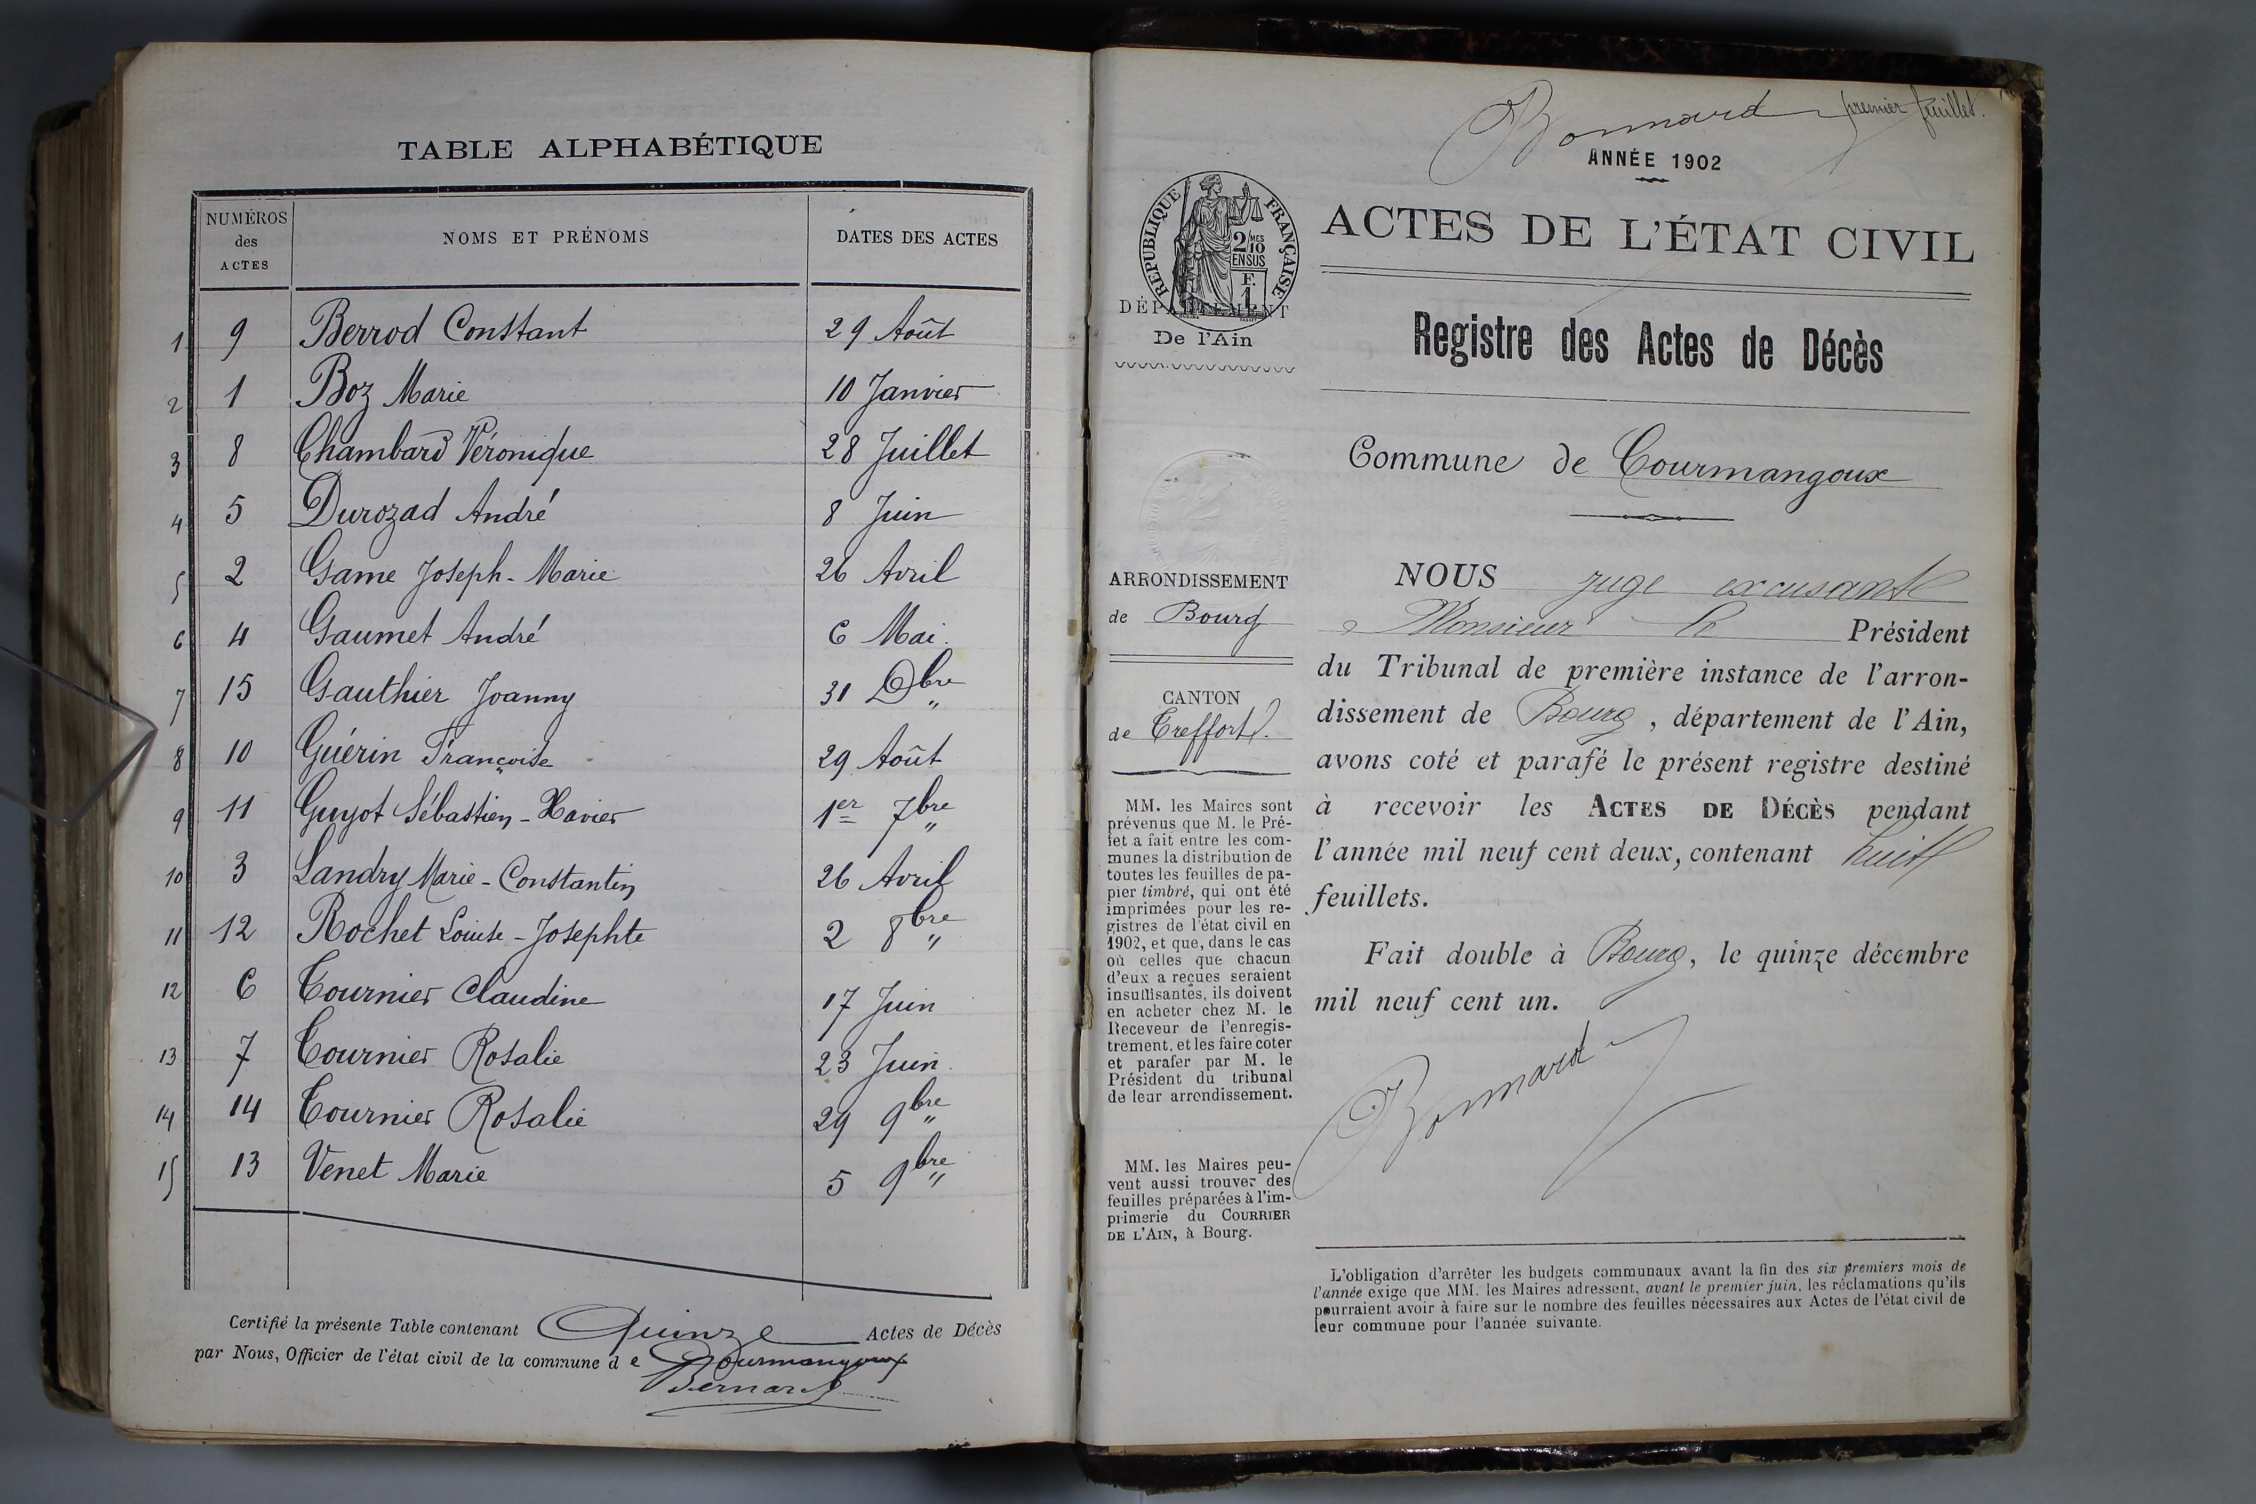 TABLE ALPHABÉTIQUE
NUMÉROS des ACTES NOMS ET PRÉNOMS DATES DES ACTES
1 9 Berrod Constant 29 Août
2 1 Boz Marie 10 Janvier
3 8 Chambard Véronique 28 Juillet
4 5 Durozad André 8 Juin
5 2 Game Joseph-Marie 26 Avril
6 4 Gaumet André 6 Mai
7 15 Gauthier Joanny 31 Dbre
8 10 Guérin Françoise 29 Août
9 11 Guyot Sébastien-Xavier 1er 7bre
10 3 Landry Marie-Constantin 26 Avril
11 12 Rochet Louise-Josephte 2 8bre
12 6 Tournier Claudine 17 Juin
13 7 Tournier Rosalie 23 Juin
14 14 Tournier Rosalie 29 9bre
15 13 Venet Marie 5 9bre
Certifié la présente Table contenant Quinze Actes de Décès
par Nous, Officier de l'état civil de la commune de Courmangoux
Bernard
Bonnard premier feuillet.
ANNÉE 1902
ACTES DE L'ÉTAT CIVIL
RÉPUBLIQUE FRANÇAISE
2/10 MES
EN SUS
F.
1
DÉPARTEMENT
De l'Ain
Registre des Actes de Décès
Commune de Courmangoux
ARRONDISSEMENT
de Bourg
CANTON
de Treffort.
MM. les Maires sont
prévenus que M. le Pré-
fet a fait entre les com-
munes la distribution de
toutes les feuilles de pa-
pier timbré, qui ont été
imprimées pour les re-
gistres de l'état civil en
1902, et que, dans le cas
où celles que chacun
d'eux a reçues seraient
insuffisantes, ils doivent
en acheter chez M. le
Receveur de l'enregis-
trement, et les faire coter
et parafer par M. le
Président du tribunal
de leur arrondissement.
MM. les Maires peu-
vent aussi trouver des
feuilles préparées à l'im-
primerie du COURRIER
DE L'AIN, à Bourg.
NOUS juge excusant
Monsieur le Président
du Tribunal de première instance de l'arron-
dissement de Bourg, département de l'Ain,
avons coté et parafé le présent registre destiné
à recevoir les ACTES DE DÉCÈS pendant
l'année mil neuf cent deux, contenant huit
feuillets.
Fait double à Bourg, le quinze décembre
mil neuf cent un.
Bonnard
L'obligation d'arrêter les budgets communaux avant la fin des six premiers mois de
l'année exige que MM. les Maires adressent, avant le premier juin, les réclamations qu'ils
pourraient avoir à faire sur le nombre des feuilles nécessaires aux Actes de l'état civil de
leur commune pour l'année suivante.